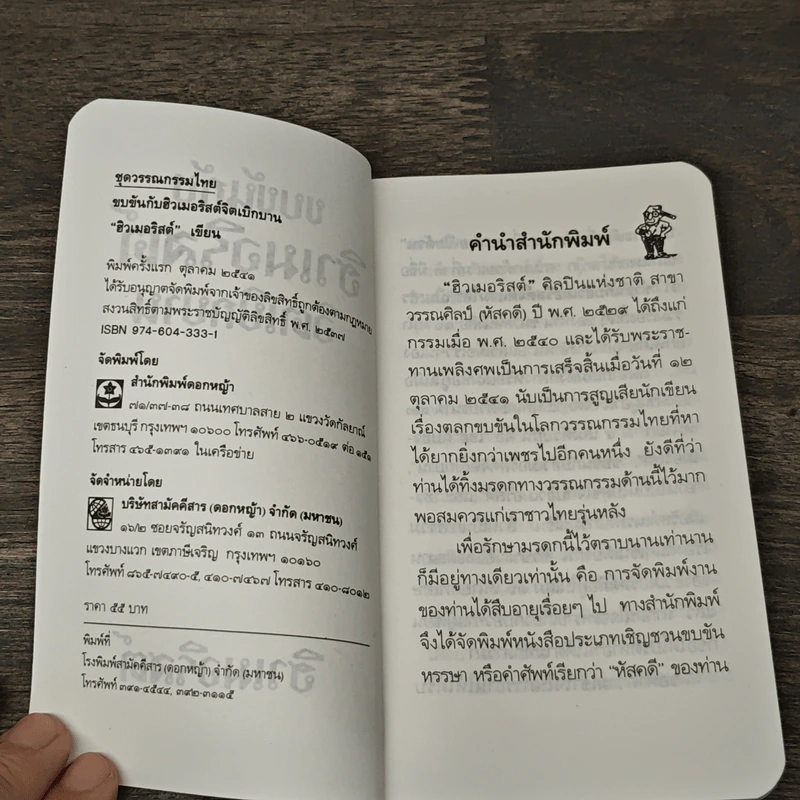 ชุดวรรณกรรมไทย
ขบขันกับฮิวเมอริสต์จิตเบิกบาน
“ฮิวเมอริสต์” เขียน
พิมพ์ครั้งแรก ตุลาคม ๒๕๔๑
ได้รับอนุญาตจัดพิมพ์จากเจ้าของลิขสิทธิ์ถูกต้องตามกฎหมาย
สงวนสิทธิ์ตามพระราชบัญญัติลิขสิทธิ์ พ.ศ. ๒๕๓๗
ISBN 974-604-333-1
จัดพิมพ์โดย
สำนักพิมพ์ดอกหญ้า
๗๑/๓๗-๓๘ ถนนเทศบาลสาย ๒ แขวงวัดกัลยาณ์
เขตธนบุรี กรุงเทพฯ ๑๐๖๐๐ โทรศัพท์ ๔๖๖-๐๕๑๙ ต่อ ๑๕๑
โทรสาร ๔๖๕-๑๓๙๑ ในเครือข่าย
จัดจำหน่ายโดย
บริษัทสามัคคีสาร (ดอกหญ้า) จำกัด (มหาชน)
๑๖/๒ ซอยจรัญสนิทวงศ์ ๑๓ ถนนจรัญสนิทวงศ์
แขวงบางแวก เขตภาษีเจริญ กรุงเทพฯ ๑๐๑๖๐
โทรศัพท์ ๘๖๕-๗๔๙๐-๕, ๔๑๐-๗๔๖๗ โทรสาร ๔๑๐-๘๐๑๒
ราคา ๕๕ บาท
พิมพ์ที่
โรงพิมพ์สามัคคีสาร (ดอกหญ้า) จำกัด (มหาชน)
โทรศัพท์ ๓๙๑-๔๕๔๔, ๓๙๒-๓๑๑๕
คำนำสำนักพิมพ์
“ฮิวเมอริสต์” ศิลปินแห่งชาติ สาขา
วรรณศิลป์ (หัสคดี) ปี พ.ศ. ๒๕๒๙ ได้ถึงแก่
กรรมเมื่อ พ.ศ. ๒๕๔๐ และได้รับพระราช-
ทานเพลิงศพเป็นการเสร็จสิ้นเมื่อวันที่ ๑๒
ตุลาคม ๒๕๔๑ นับเป็นการสูญเสียนักเขียน
เรื่องตลกขบขันในโลกวรรณกรรมไทยที่หา
ได้ยากยิ่งกว่าเพชรไปอีกคนหนึ่ง ยังดีที่ว่า
ท่านได้ทิ้งมรดกทางวรรณกรรมด้านนี้ไว้มาก
พอสมควรแก่เราชาวไทยรุ่นหลัง
เพื่อรักษามรดกนี้ไว้ตราบนานเท่านาน
ก็มีอยู่ทางเดียวเท่านั้น คือ การจัดพิมพ์งาน
ของท่านได้สืบอายุเรื่อยๆ ไป ทางสำนักพิมพ์
จึงได้จัดพิมพ์หนังสือประเภทเชิญชวนขบขัน
หรรษา หรือคำศัพท์เรียกว่า “หัสคดี” ของท่าน